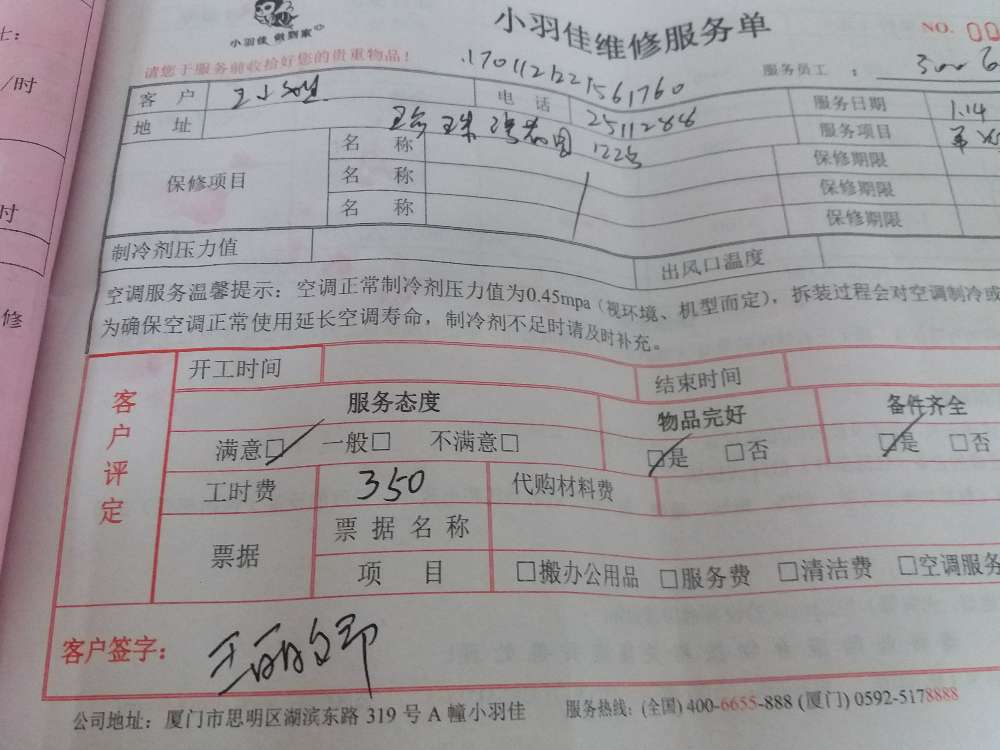 士：
/时
时
修
小羽佳 做到家
小羽佳维修服务单
NO. 00
请您于服务前收拾好您的贵重物品！
.1701121221561760
服务员工 ：
客 户 王小姐 电 话 2511288 服务日期 1.14
地 址 服务项目
保修项目 名 称 122号 保修期限
名 称 保修期限
名 称 保修期限
制冷剂压力值 出风口温度
空调服务温馨提示：空调正常制冷剂压力值为0.45mpa（视环境、机型而定），拆装过程会对空调制冷或
为确保空调正常使用延长空调寿命，制冷剂不足时请及时补充。
客户评定
开工时间 结束时间
服务态度 物品完好 备件齐全
满意☑ 一般□ 不满意□ ☑是 □否 ☑是 □否
工时费 350 代购材料费
票据 票 据 名 称
项 目 □搬办公用品 □服务费 □清洁费 □空调服务
客户签字：
公司地址：厦门市思明区湖滨东路 319 号 A 幢小羽佳 服务热线：(全国) 400-6655-888 (厦门) 0592-5178888